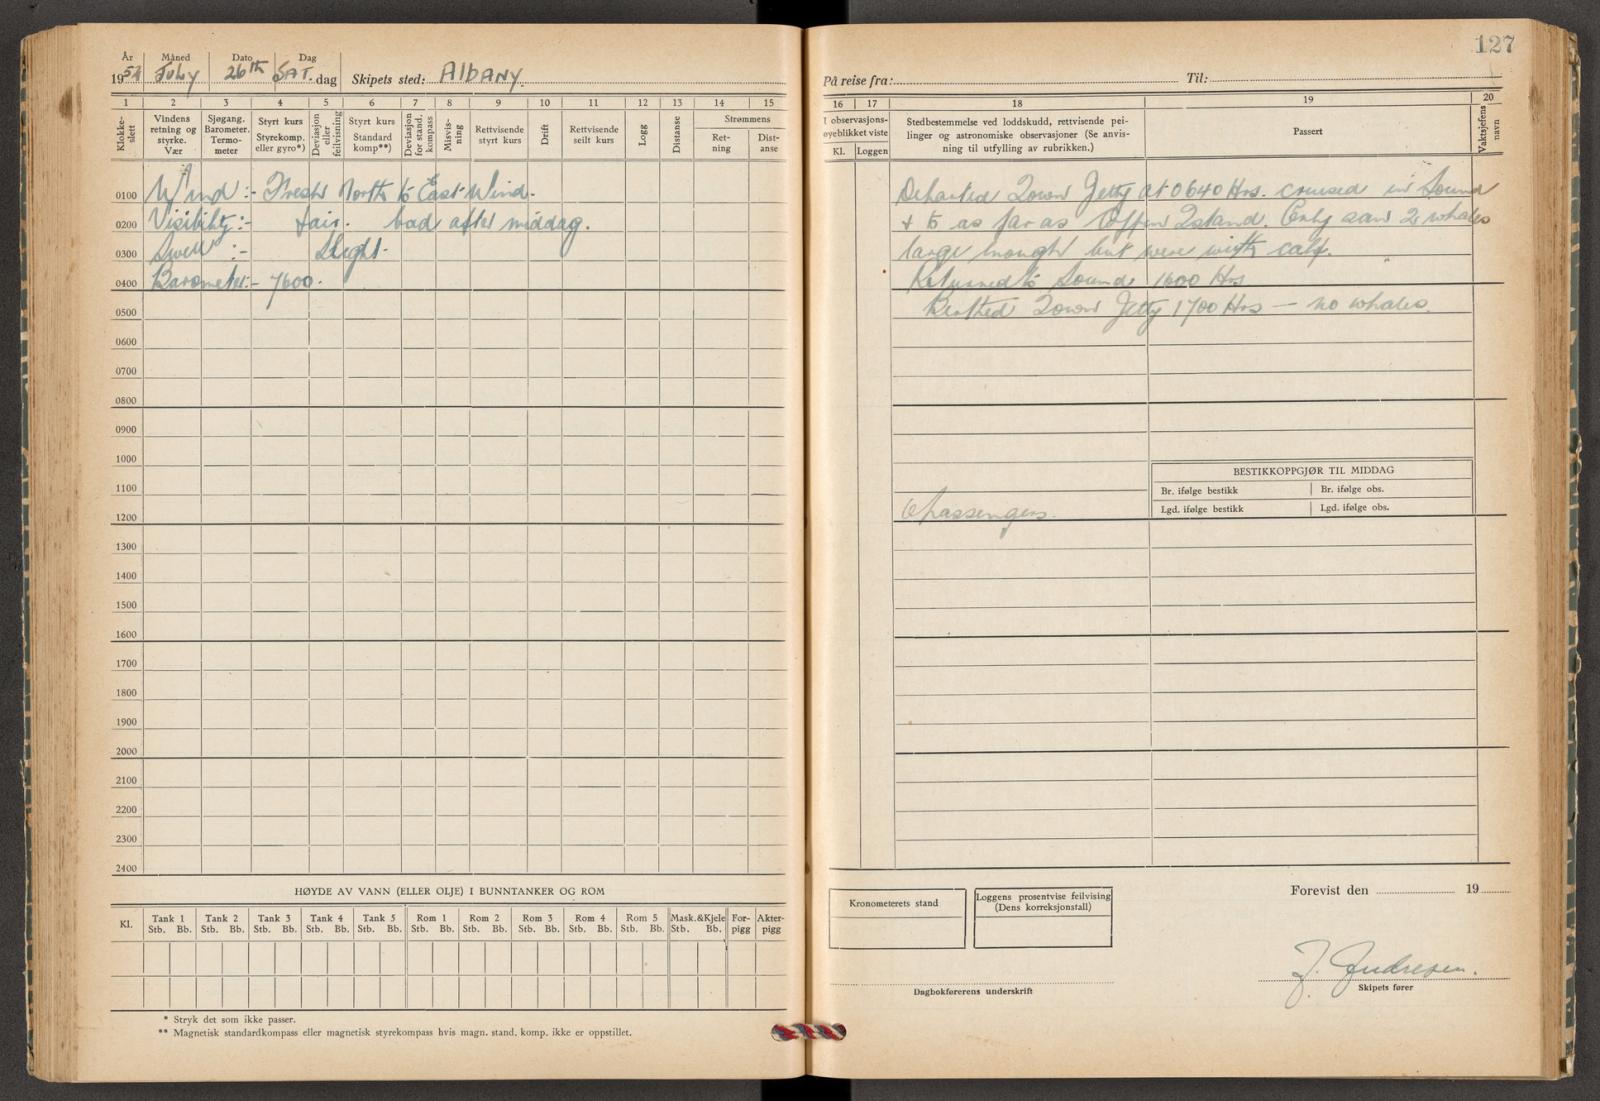 127
År Måned Dato Dag
1952 July 26th SAT. dag Skipets sted: Albany.
På reise fra: Til:
1 2 3 4 5 6 7 8 9 10 11 12 13 14 15
Klokke-slett
Vindens retning og styrke. Vær
Sjøgang. Barometer. Termo-meter
Styrt kurs Styrekomp. eller gyro*)
Deviasjon eller feilvisning
Styrt kurs Standard komp**)
Deviasjon for stand. kompass
Misvis-ning
Rettvisende styrt kurs
Drift
Rettvisende seilt kurs
Logg
Distanse
Strømmens
Ret-ning
Dist-anse
16 17 18 19 20
I observasjons-øyeblikket viste
Kl. Loggen
Stedbestemmelse ved loddskudd, rettvisende pei-
linger og astronomiske observasjoner (Se anvis-
ning til utfylling av rubrikken.)
Passert
Vaktsjefens navn
0100 Wind :- Fresh North to East Wind.
0200 Visibility :- fair. bad after middag.
0300 Swell :- Slight.
0400 Barometer:- 7600.
0500
0600
0700
0800
0900
1000
1100
1200
1300
1400
1500
1600
1700
1800
1900
2000
2100
2200
2300
2400
Departed Town Jetty at 0640 Hrs. cruised in Sound
+ to as far as Coffin Island. Only saw 2 whales
large enough but were with calf.
Returned to Sound 1600 Hrs
Berthed Town Jetty 1700 Hrs — no whales.
BESTIKKOPPGJØR TIL MIDDAG
Br. ifølge bestikk Br. ifølge obs.
Lgd. ifølge bestikk Lgd. ifølge obs.
6 passengers.
HØYDE AV VANN (ELLER OLJE) I BUNNTANKER OG ROM
Kl. Tank 1 Tank 2 Tank 3 Tank 4 Tank 5 Rom 1 Rom 2 Rom 3 Rom 4 Rom 5 Mask.&Kjele For-pigg Akter-pigg
Stb. Bb. Stb. Bb. Stb. Bb. Stb. Bb. Stb. Bb. Stb. Bb. Stb. Bb. Stb. Bb. Stb. Bb. Stb. Bb. Stb. Bb.
* Stryk det som ikke passer.
** Magnetisk standardkompass eller magnetisk styrekompass hvis magn. stand. komp. ikke er oppstillet.
Kronometerets stand
Loggens prosentvise feilvising
(Dens korreksjonstall)
Forevist den 19
Dagbokførerens underskrift
J. Andresen.
Skipets fører